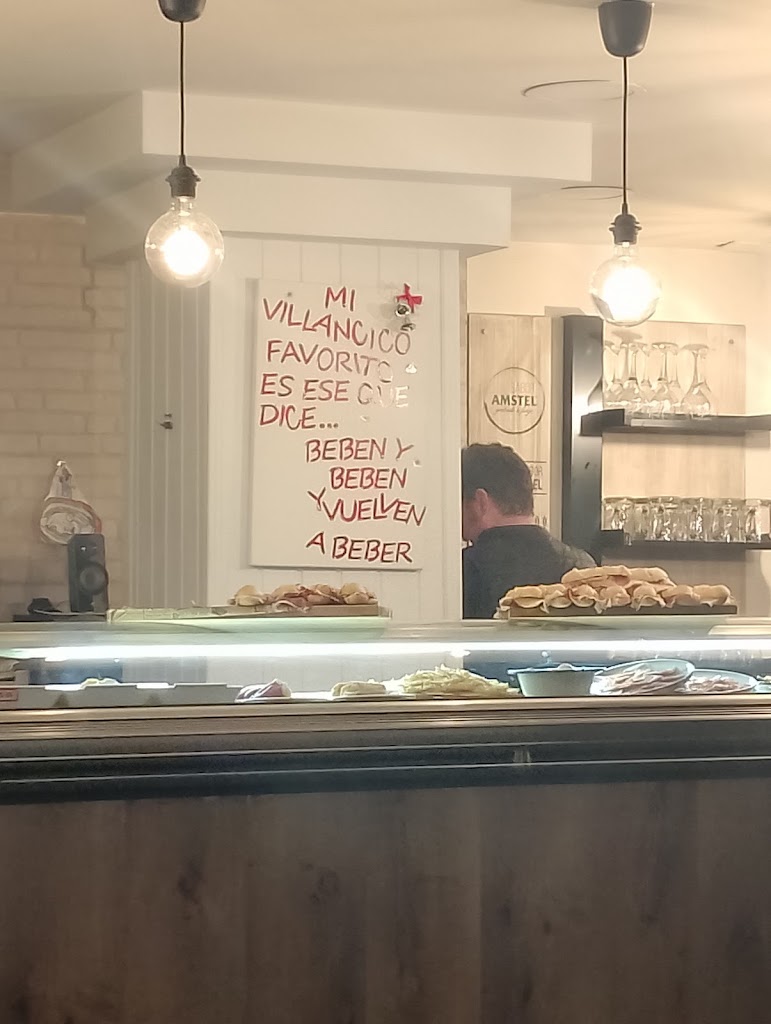 MI
VILLANCICO
FAVORITO
ES ESE QUE
DICE...
BEBEN Y
BEBEN
Y VUELVEN
A BEBER
AMSTEL